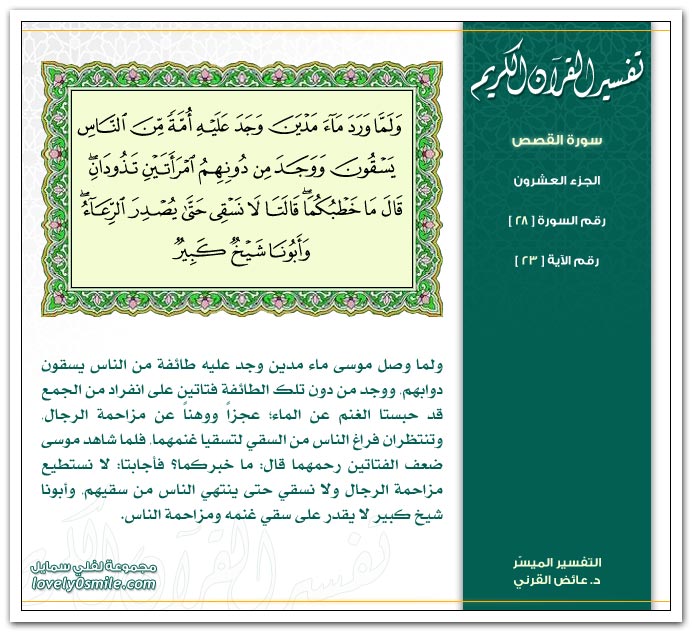 تفسير القرآن الكريم
سورة القصص
الجزء العشرون
رقم السورة [ ٢٨ ]
رقم الآية [ ٢٣ ]
وَلَمَّا وَرَدَ مَآءَ مَدْيَنَ وَجَدَ عَلَيْهِ أُمَّةً مِّنَ ٱلنَّاسِ
يَسْقُونَ وَوَجَدَ مِن دُونِهِمُ ٱمْرَأَتَيْنِ تَذُودَانِ ۖ
قَالَ مَا خَطْبُكُمَا ۖ قَالَتَا لَا نَسْقِى حَتَّىٰ يُصْدِرَ ٱلرِّعَآءُ ۖ
وَأَبُونَا شَيْخٌ كَبِيرٌ
ولما وصل موسى ماء مدين وجد عليه طائفة من الناس يسقون
دوابهم، ووجد من دون تلك الطائفة فتاتين على انفراد من الجمع
قد حبستا الغنم عن الماء؛ عجزاً ووهناً عن مزاحمة الرجال،
وتنتظران فراغ الناس من السقي لتسقيا غنمهما، فلما شاهد موسى
ضعف الفتاتين رحمهما قال: ما خبركما؟ فأجابتا: لا نستطيع
مزاحمة الرجال ولا نسقي حتى ينتهي الناس من سقيهم، وأبونا
شيخ كبير لا يقدر على سقي غنمه ومزاحمة الناس.
التفسير الميسّر
د. عائض القرني
مجموعة لفلي سمايل
lovely0smile.com